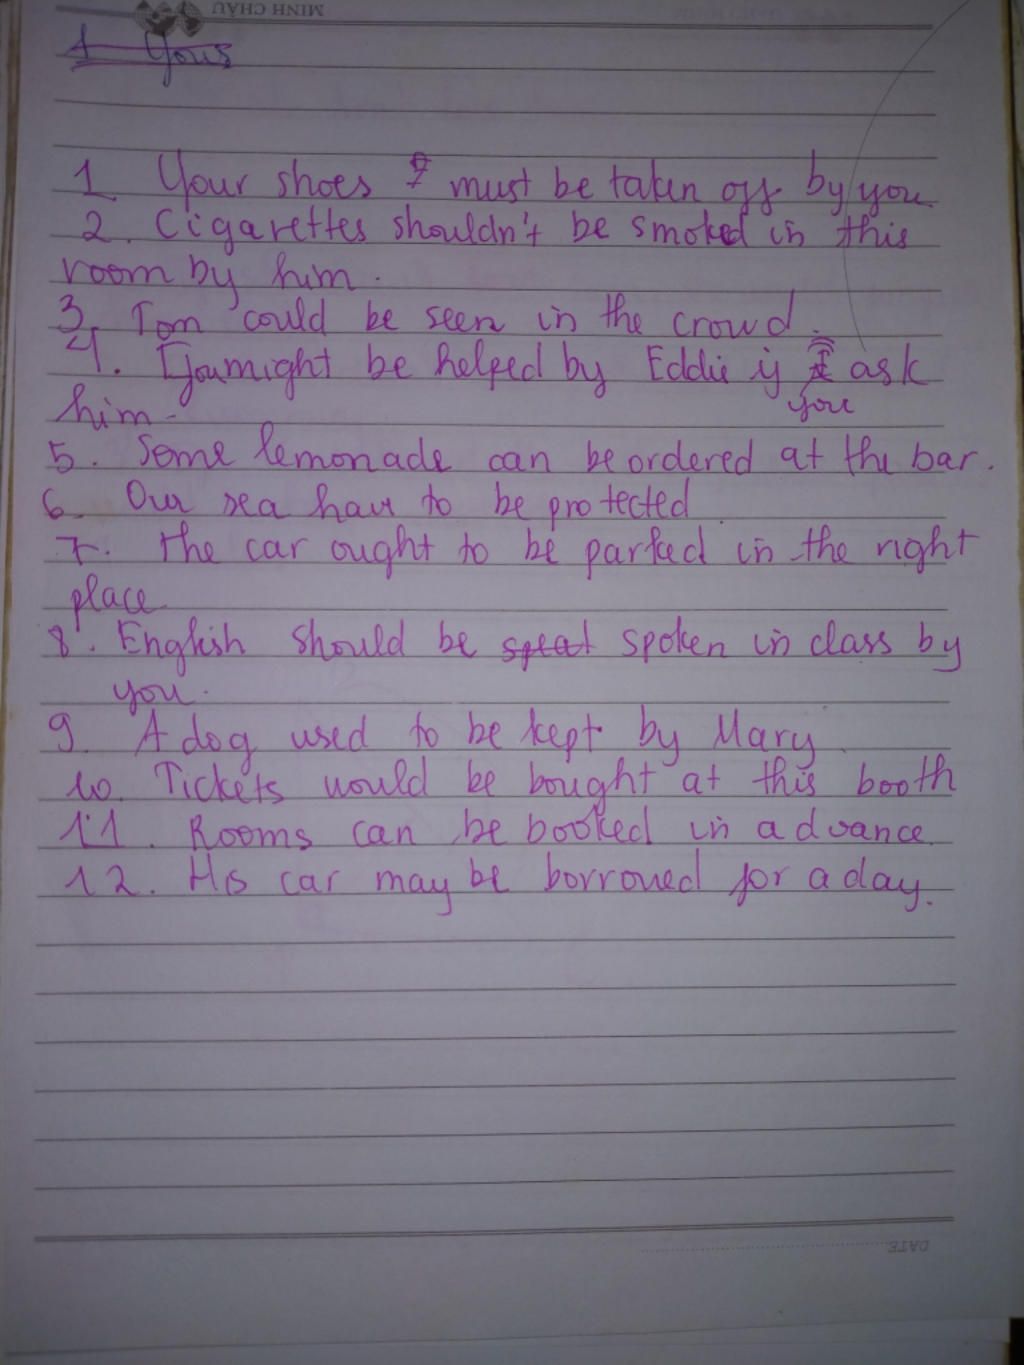 MINH CHÂU
1 Yous
1. Your shoes must be taken off by you.
2. Cigarettes shouldn't be smoked in this
room by him.
3. Tom could be seen in the crowd.
4. You might be helped by Eddie if ask
you
him.
5. Some lemonade can be ordered at the bar.
6. Our sea have to be protected.
7. The car ought to be parked in the right
place.
8. English should be speat spoken in class by
you.
9. A dog used to be kept by Mary.
10. Tickets would be bought at this booth
11. Rooms can be booked in advance.
12. His car may be borrowed for a day.
DATE